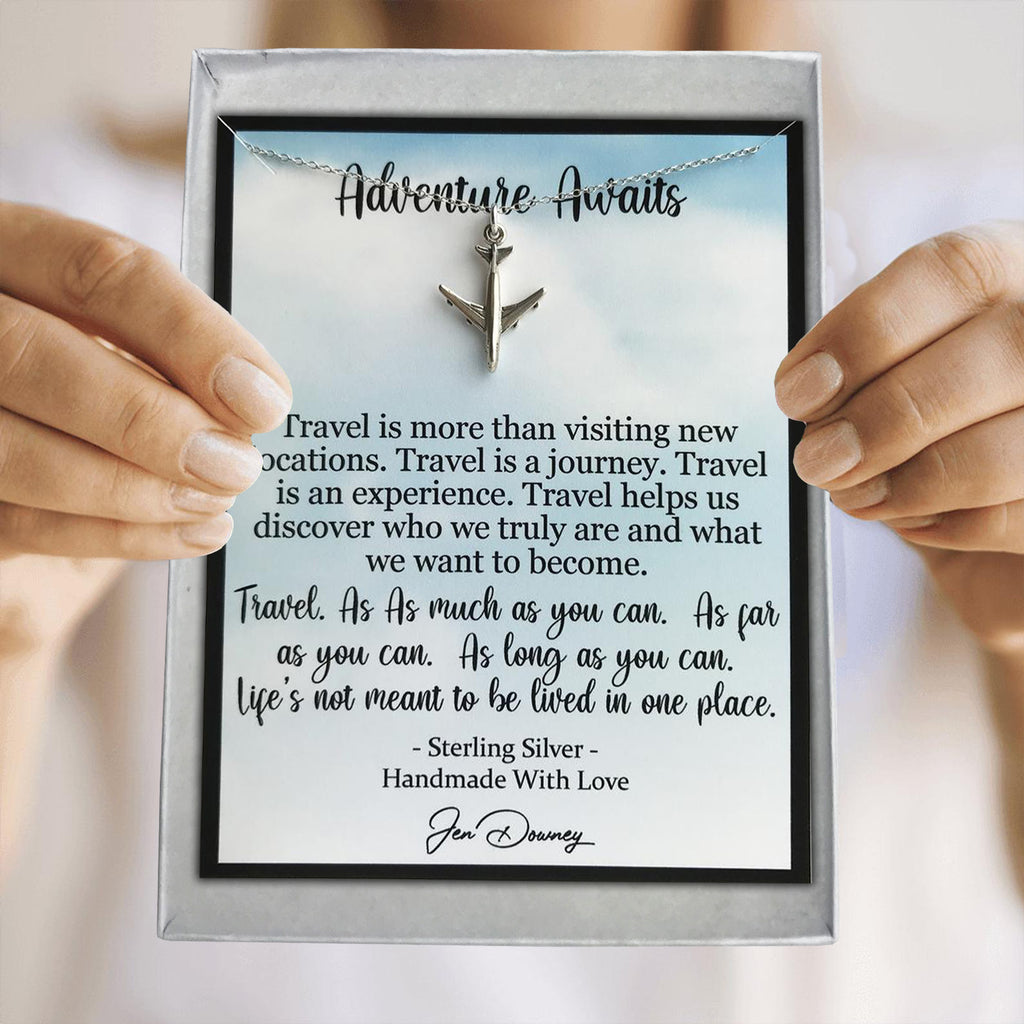 Adventure Awaits
Travel is more than visiting new
ocations. Travel is a journey. Travel
is an experience. Travel helps us
discover who we truly are and what
we want to become.
Travel. As As much as you can. As far
as you can. As long as you can.
Life's not meant to be lived in one place.
- Sterling Silver -
Handmade With Love
Jen Downey